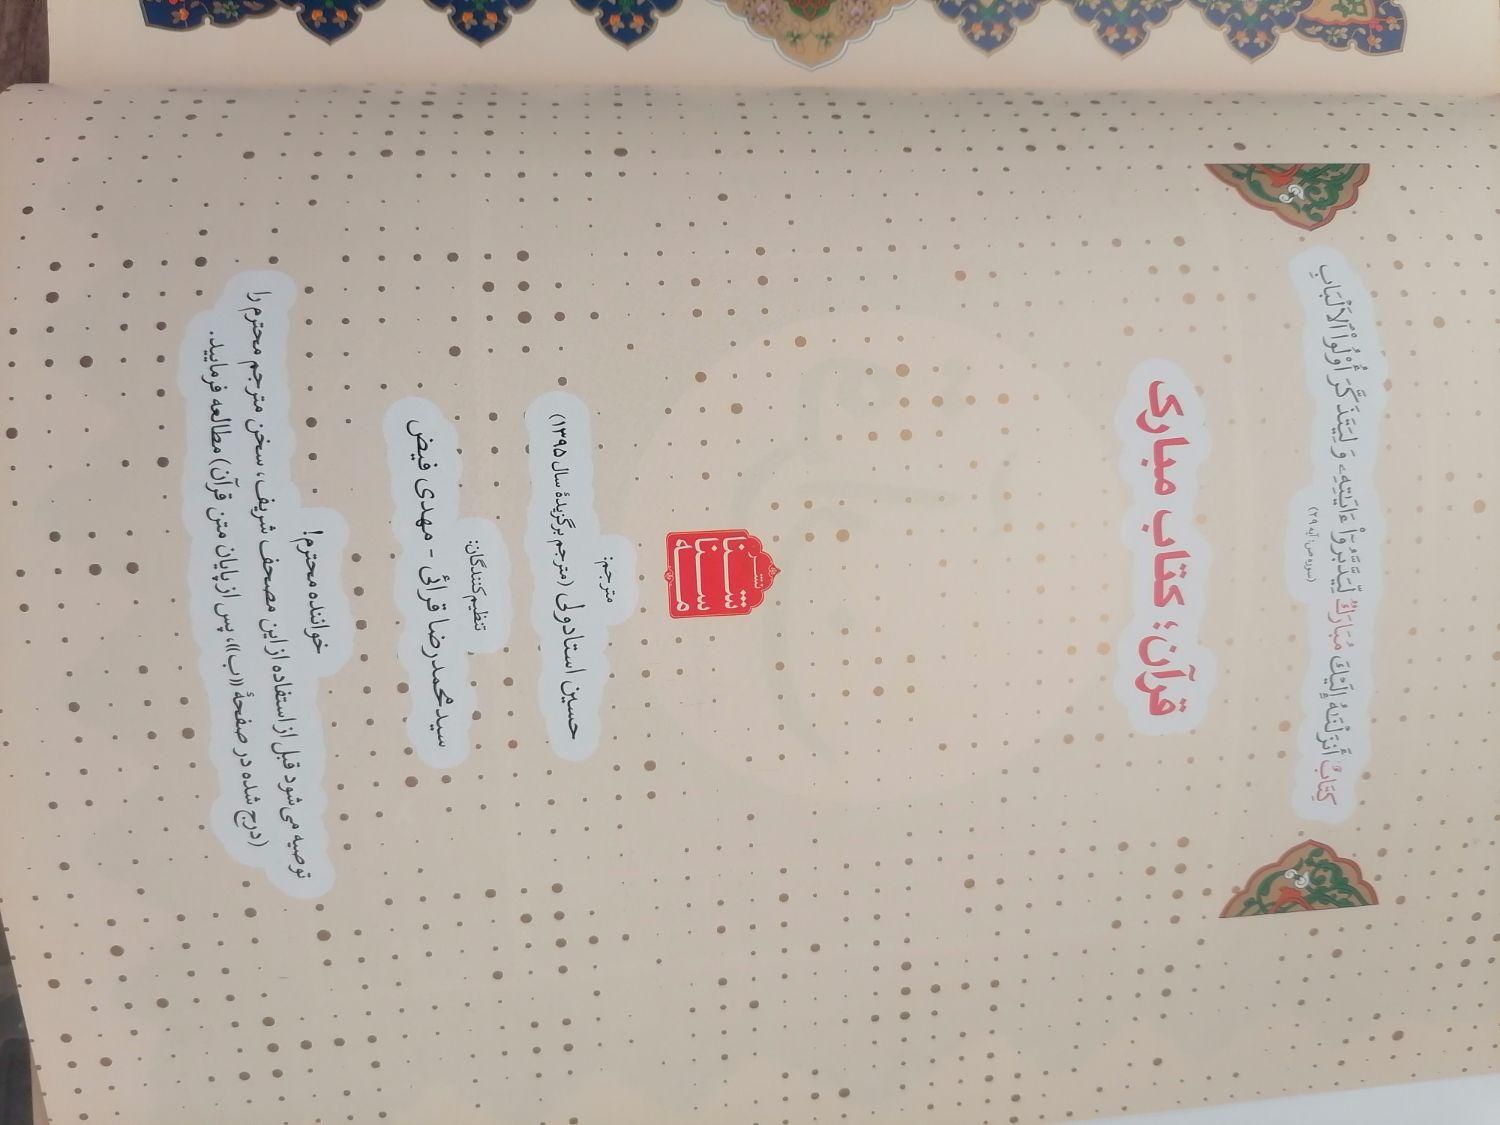 كِتَابٌ أَنزَلْنَهُ إِلَيْكَ مُبَارَكٌ لِّيَدَّبَّرُوٓاْ ءَايَتِهِۦ وَ لِيَتَذَكَّرَ أُوْلُواْ ٱلْأَلْبَابِ
(سوره ص: آیه ۲۹)
قرآن؛ کتاب مبارک
نشر
مترجم:
حسین استادولی (مترجم برگزیدهٔ سال ۱۳۹۵)
تنظیم‌کنندگان:
سیدمحمدرضا قرائی - مهدی فیض
خواننده محترم!
توصیه می‌شود قبل از استفاده از این مصحف شریف، سخن مترجم محترم را
(درج شده در صفحهٔ «ب»، پس از پایان متن قرآن) مطالعه فرمایید.